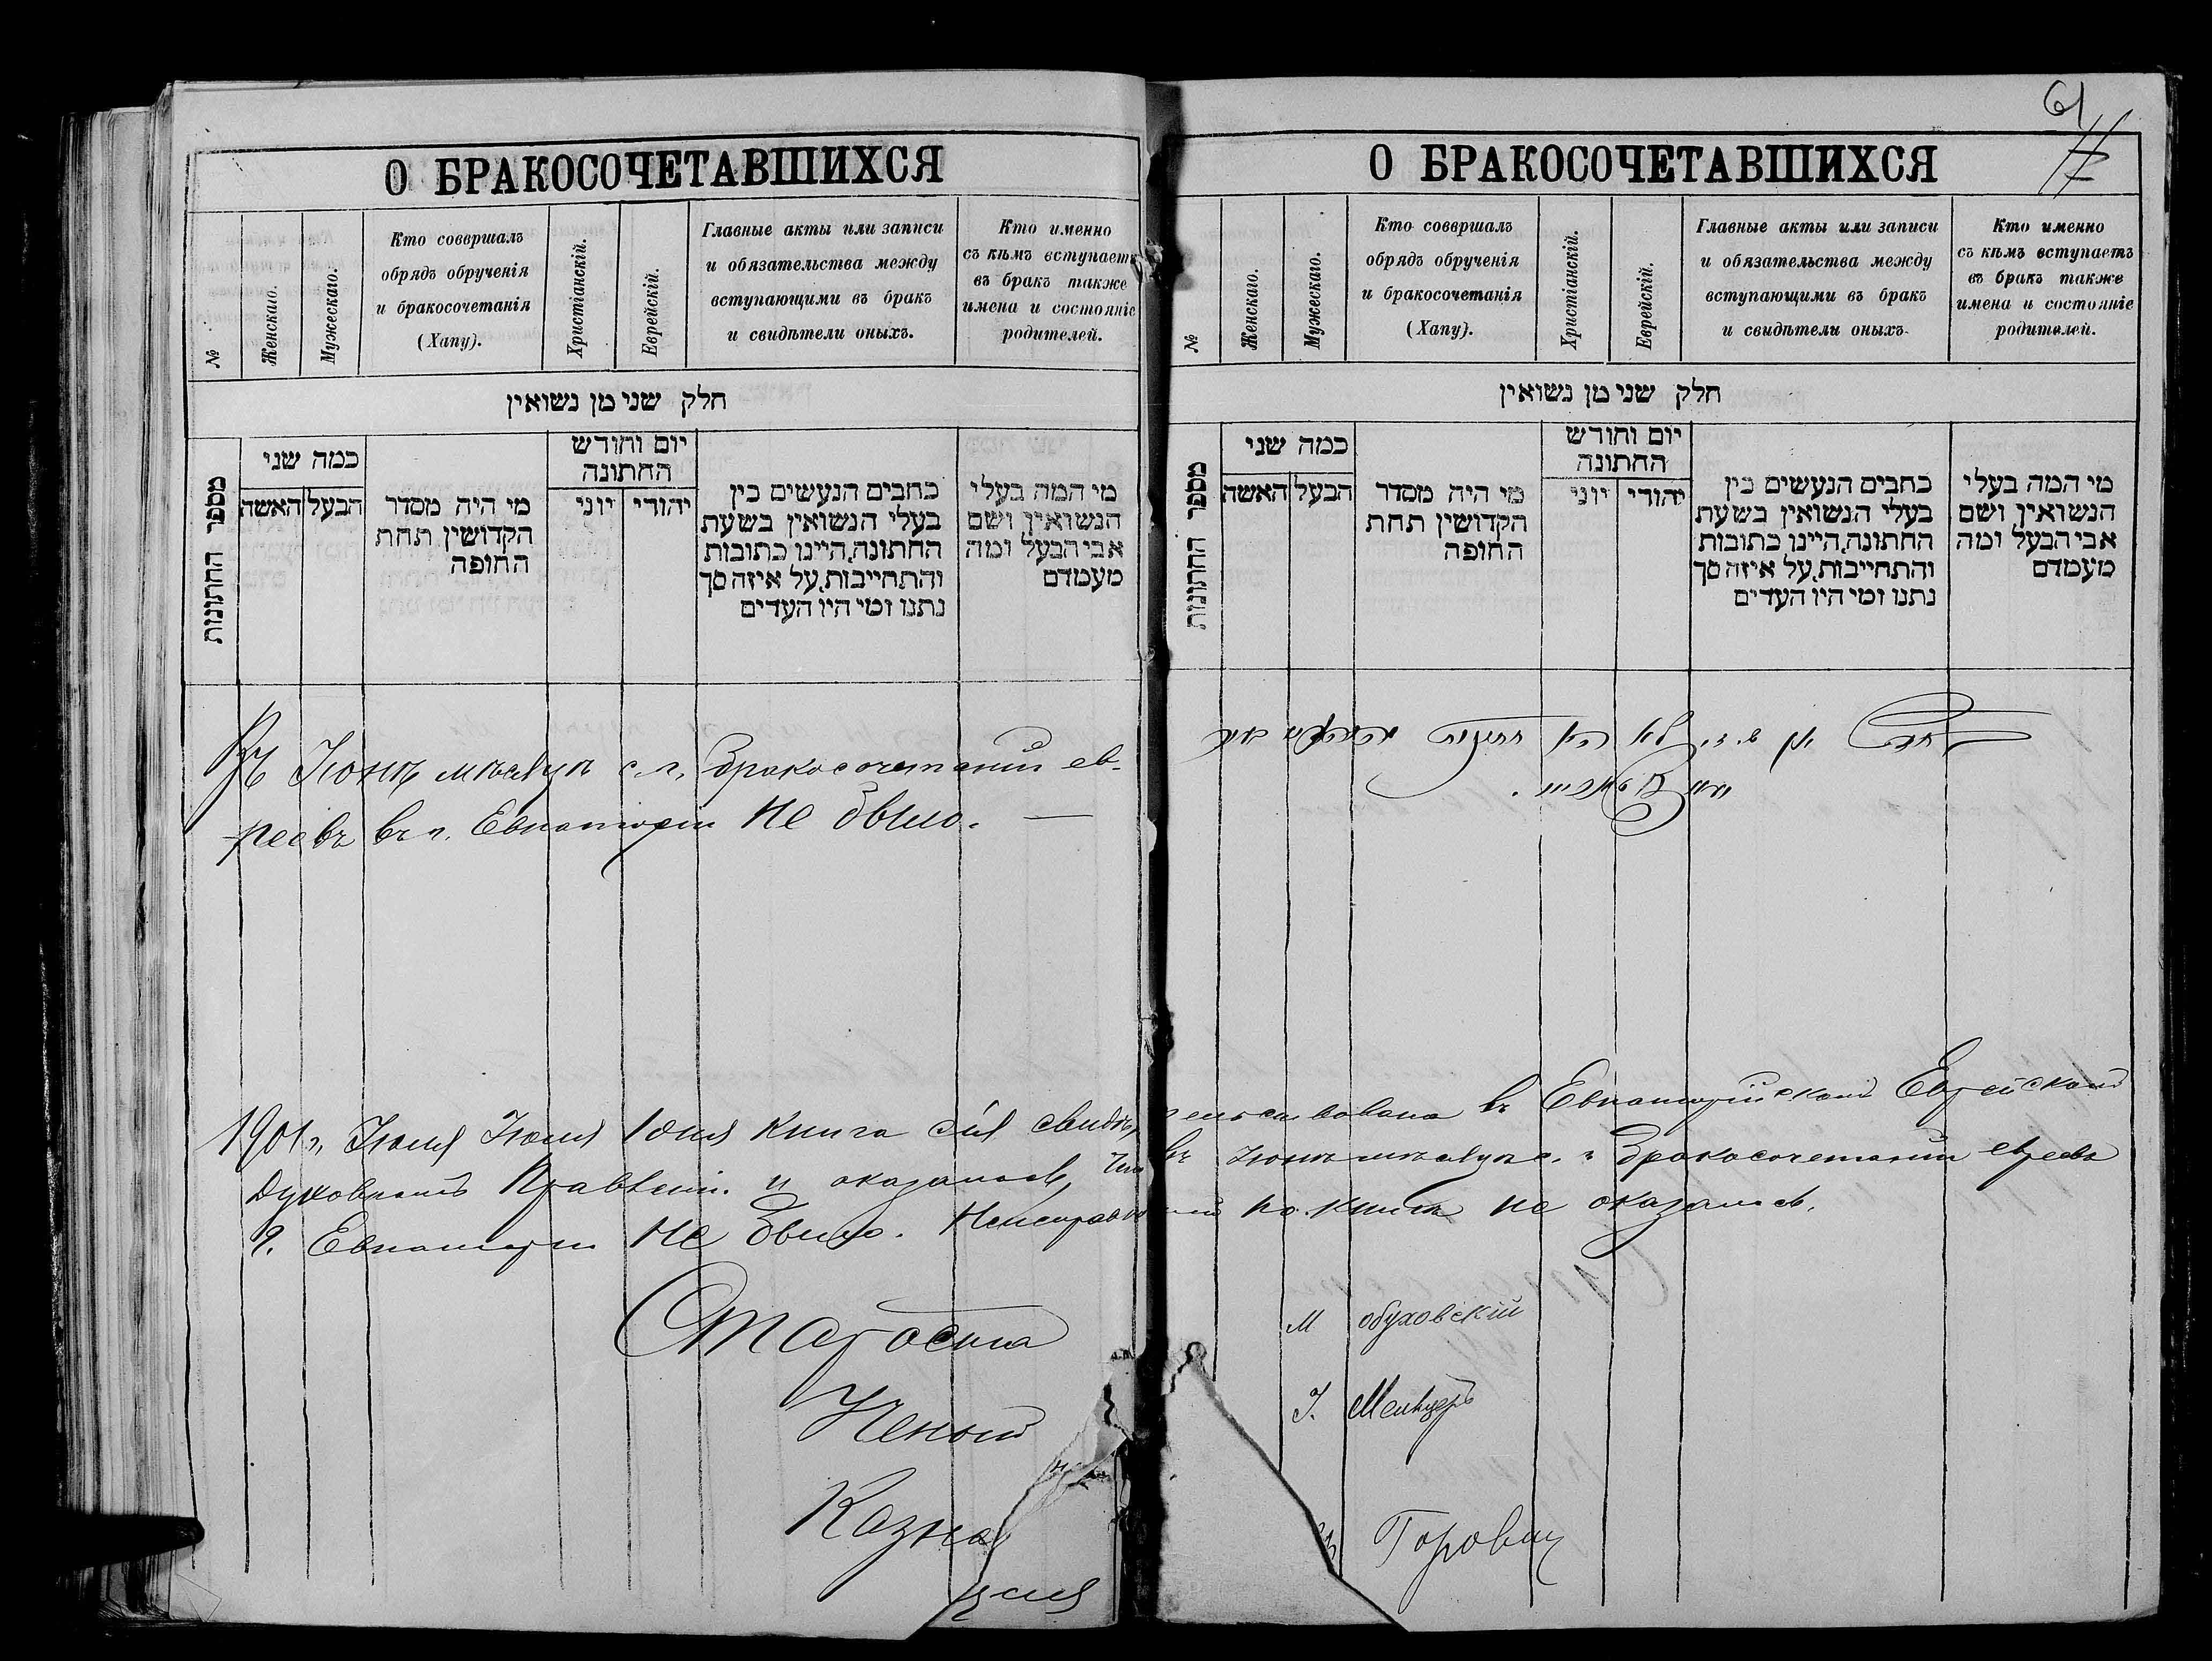 О БРАКОСОЧЕТАВШИХСЯ
№
Женскаго.
Мужескаго.
Кто совершалъ
обрядъ обрученія
и бракосочетанія
(Хапу).
Христіанскій.
Еврейскій.
Главные акты или записи
и обязательства между
вступающими въ бракъ
и свидѣтели оныхъ.
Кто именно
съ кѣмъ вступаетъ
въ бракъ также
имена и состояніе
родителей.
חלק שני מן נשואין
מספר החתונות
כמה שני
האשה
הבעל
מי היה מסדר
הקדושין תחת
החופה
יום וחודש
החתונה
יוני
יהודי
כתבים הנעשים בין
בעלי הנשואין בשעת
החתונה,היינו כתובות
והתחייבות,על איזה סך
נתנו ומי היו העדים
מי המה בעלי
הנשואין ושם
אבי הבעל ומה
מעמדם
Въ Іюнѣ мѣсяцѣ с.г. бракосочетаній ев-
реевъ въ г. Евпаторіи не было. —
61
О БРАКОСОЧЕТАВШИХСЯ
№
Женскаго.
Мужескаго.
Кто совершалъ
обрядъ обрученія
и бракосочетанія
(Хапу).
Христіанскій.
Еврейскій.
Главные акты или записи
и обязательства между
вступающими въ бракъ
и свидѣтели оныхъ.
Кто именно
съ кѣмъ вступаетъ
въ бракъ также
имена и состояніе
родителей.
חלק שני מן נשואין
מספר החתונות
כמה שני
האשה
הבעל
מי היה מסדר
הקדושין תחת
החופה
יום וחודש
החתונה
יוני
יהודי
כתבים הנעשים בין
בעלי הנשואין בשעת
החתונה,היינו כתובות
והתחייבות,על איזה סך
נתנו ומי היו העדים
מי המה בעלי
הנשואין ושם
אבי הבעל ומה
מעמדם
1901 г. Іюля Іюля 1 дня книга сія свидѣтельствована въ Евпаторійскомъ Еврейскомъ
Духовномъ Правленіи и оказалось, что въ Іюнѣ мѣсяцѣ с. г. бракосочетаній евреевъ
г. Евпаторіи не было. Неисправностей по книгѣ не оказалось.
Староста М Обуховскій
Ученый І. Менцеръ
Казна Горовиц